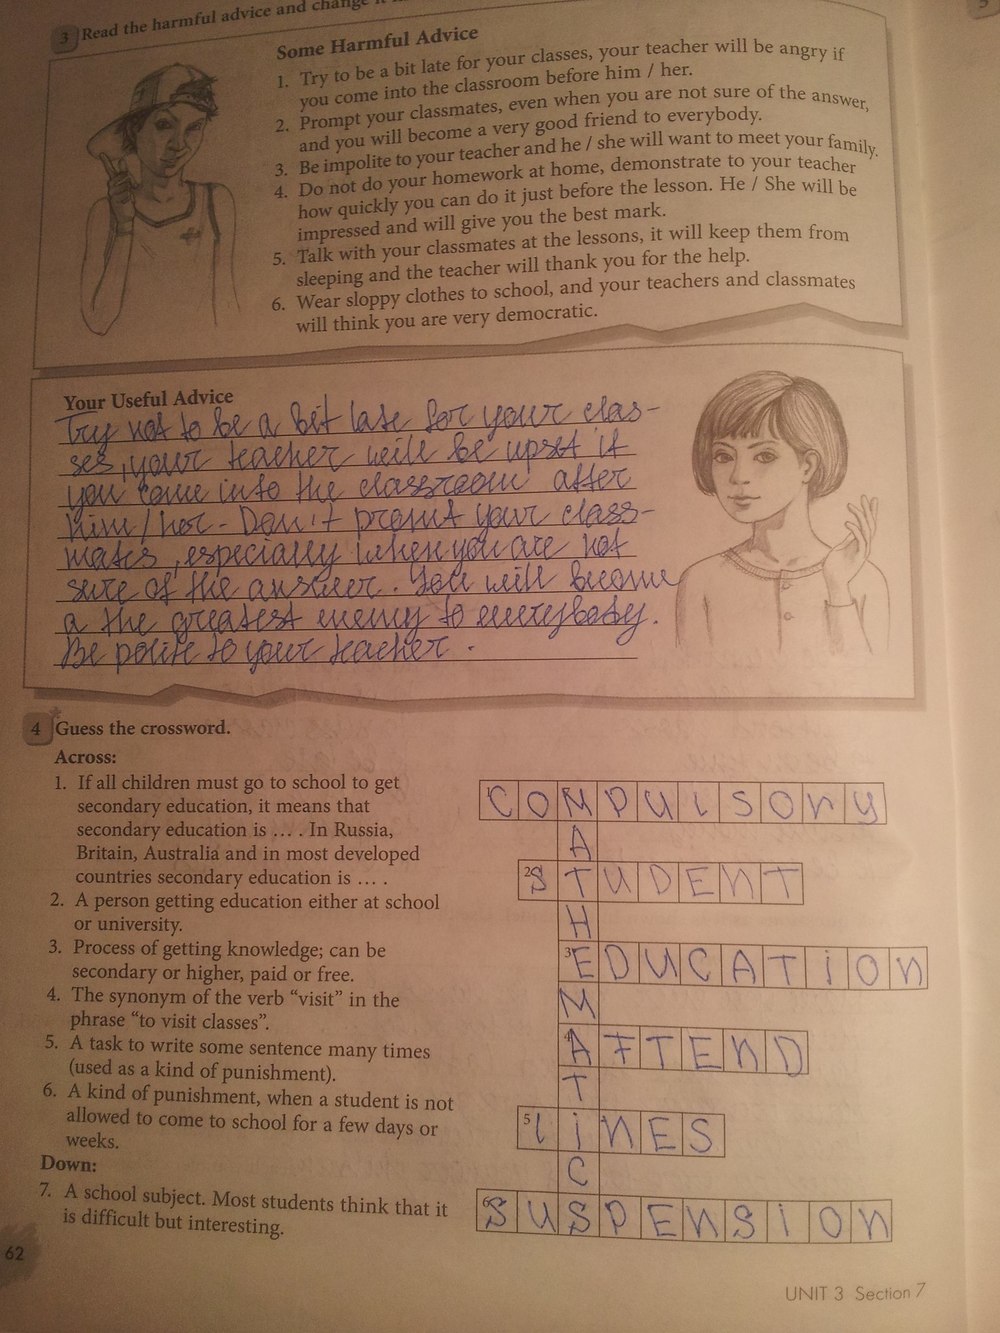 3 Read the harmful advice and change it
Some Harmful Advice
1. Try to be a bit late for your classes, your teacher will be angry if
you come into the classroom before him / her.
2. Prompt your classmates, even when you are not sure of the answer,
and you will become a very good friend to everybody.
3. Be impolite to your teacher and he / she will want to meet your family.
4. Do not do your homework at home, demonstrate to your teacher
how quickly you can do it just before the lesson. He / She will be
impressed and will give you the best mark.
5. Talk with your classmates at the lessons, it will keep them from
sleeping and the teacher will thank you for the help.
6. Wear sloppy clothes to school, and your teachers and classmates
will think you are very democratic.
Your Useful Advice
Try not to be a bit late for your clas-
ses, your teacher will be upset if
you come into the classroom after
him / her. Don't promt your class-
mates, especially when you are not
sure of the answer. You will become
a the greatest enemy to everybody.
Be polite to your teacher.
4 Guess the crossword.
Across:
1. If all children must go to school to get
secondary education, it means that
secondary education is ... . In Russia,
Britain, Australia and in most developed
countries secondary education is ... .
2. A person getting education either at school
or university.
3. Process of getting knowledge; can be
secondary or higher, paid or free.
4. The synonym of the verb “visit” in the
phrase “to visit classes”.
5. A task to write some sentence many times
(used as a kind of punishment).
6. A kind of punishment, when a student is not
allowed to come to school for a few days or
weeks.
Down:
7. A school subject. Most students think that it
is difficult but interesting.
1 COMPULSORY
A
2 STUDENT
H
3 EDUCATION
M
4 ATTEND
T
5 LINES
C
6 SUSPENSION
62
UNIT 3 Section 7